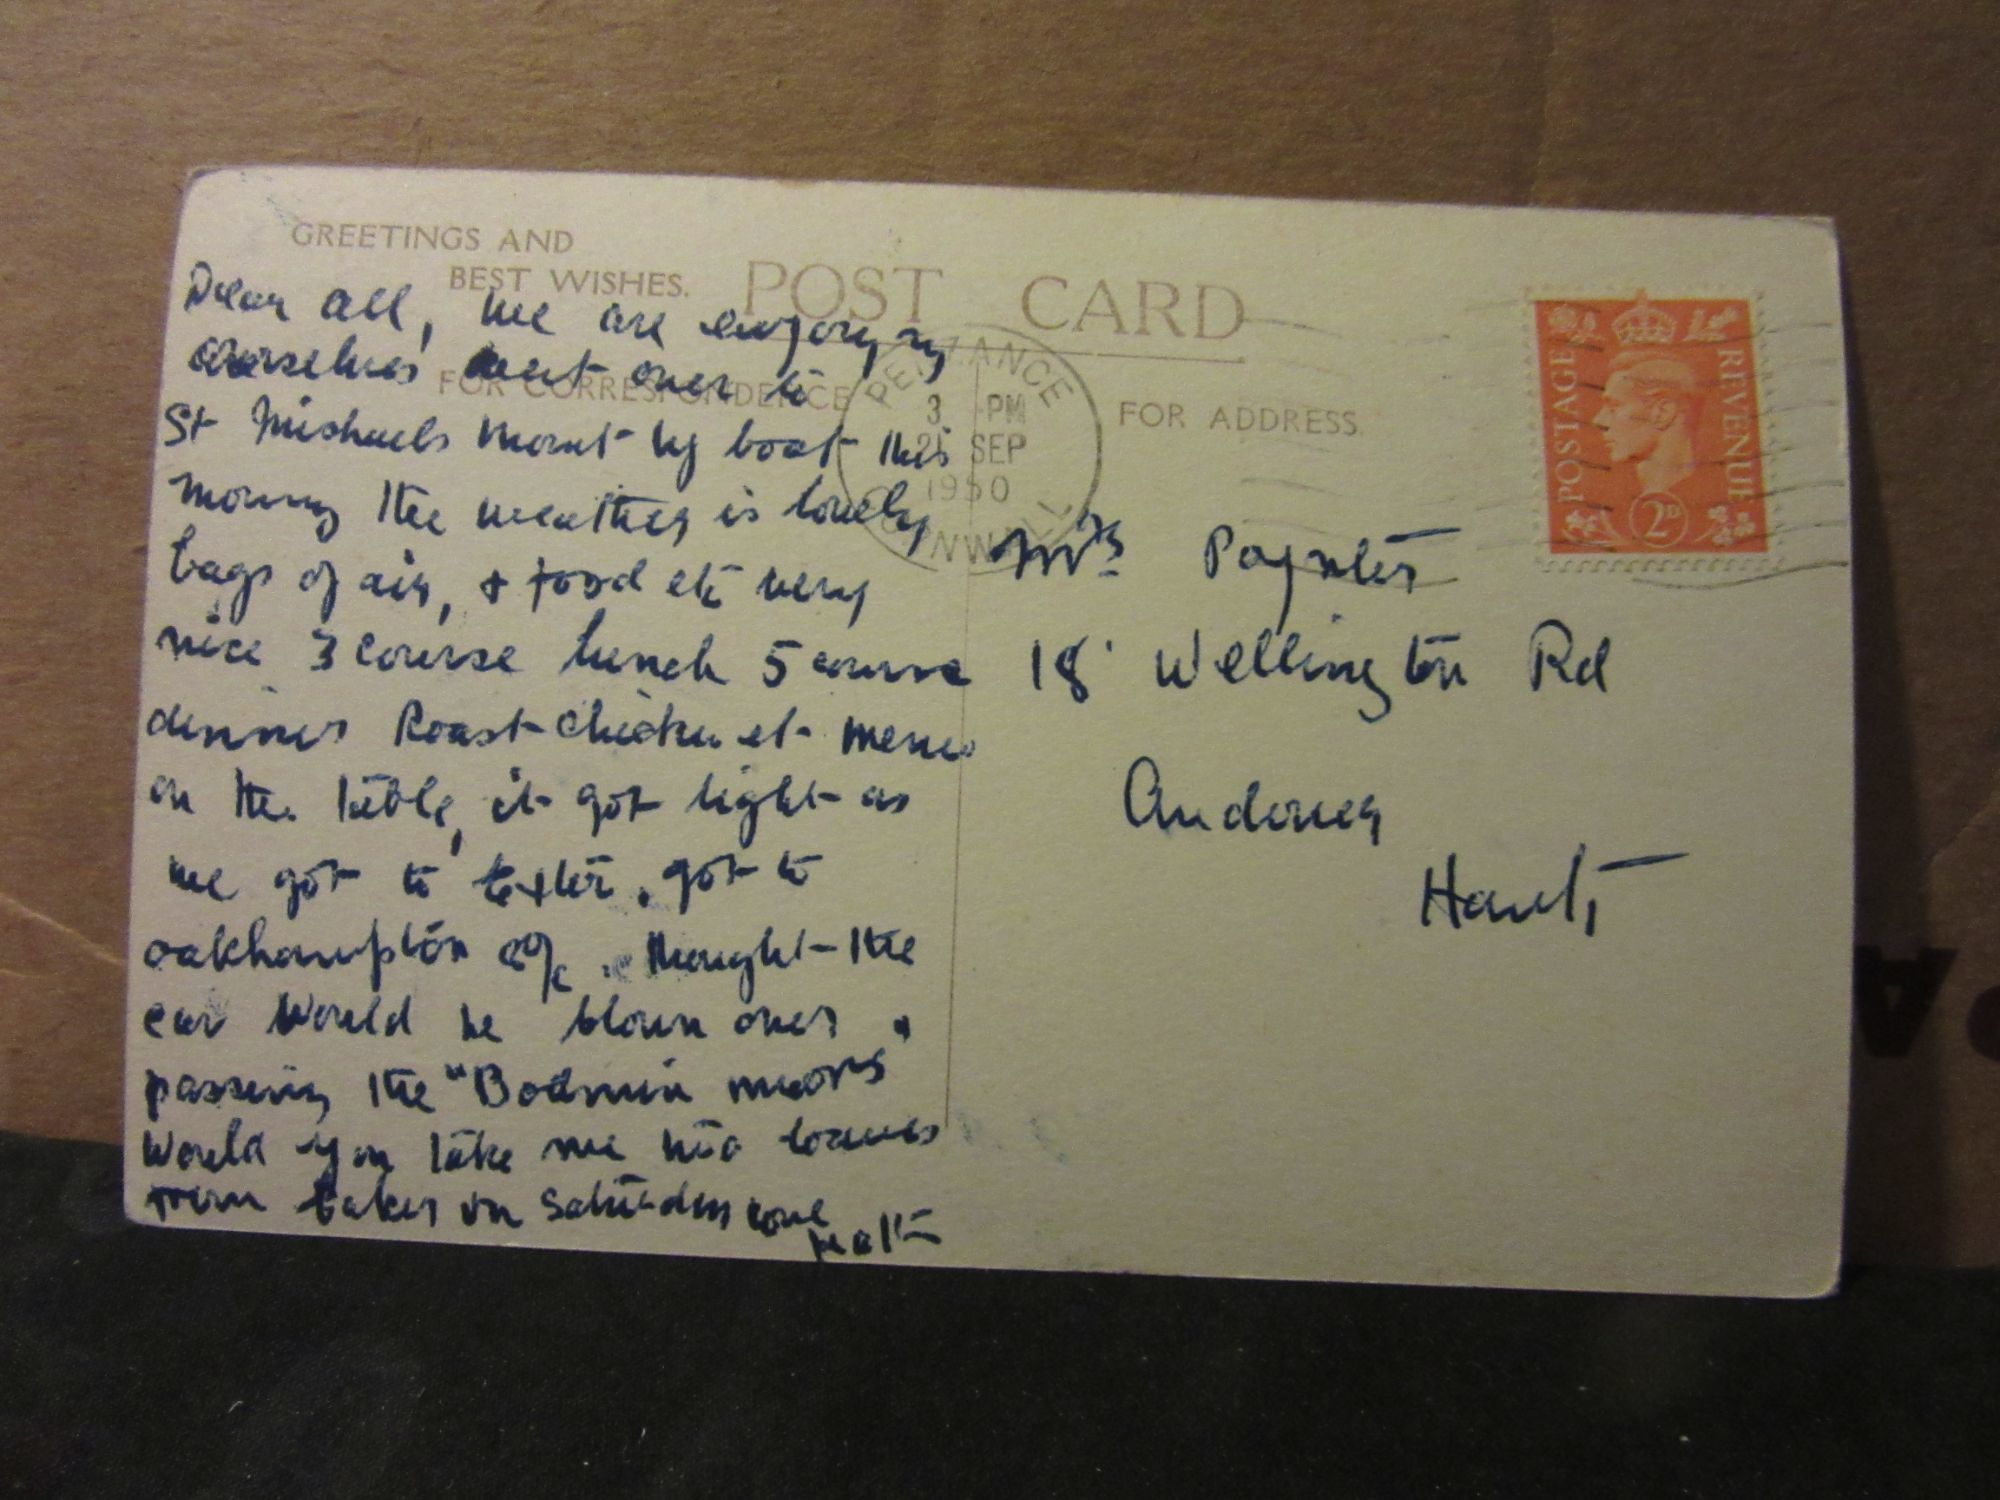 GREETINGS AND
BEST WISHES.
POST CARD
FOR CORRESPONDENCE
FOR ADDRESS.
PENZANCE
3 PM
21 SEP
1950
CORNWALL
POSTAGE
REVENUE
2D
Dear all, we are enjoying
ourselves went over to
St Michaels Mount by boat this
morning the weather is lovely
bags of air, & food etc very
nice 3 course lunch 5 course
dinner Roast chicken et menus
on the table, it got light as
we got to Exeter. got to
oakhampton thought the
car would be blown over
passing the "Bodmin moors"
Would you take me two loaves
from baker on Saturday
Mrs Poynter
18 Wellington Rd
Andover
Hants